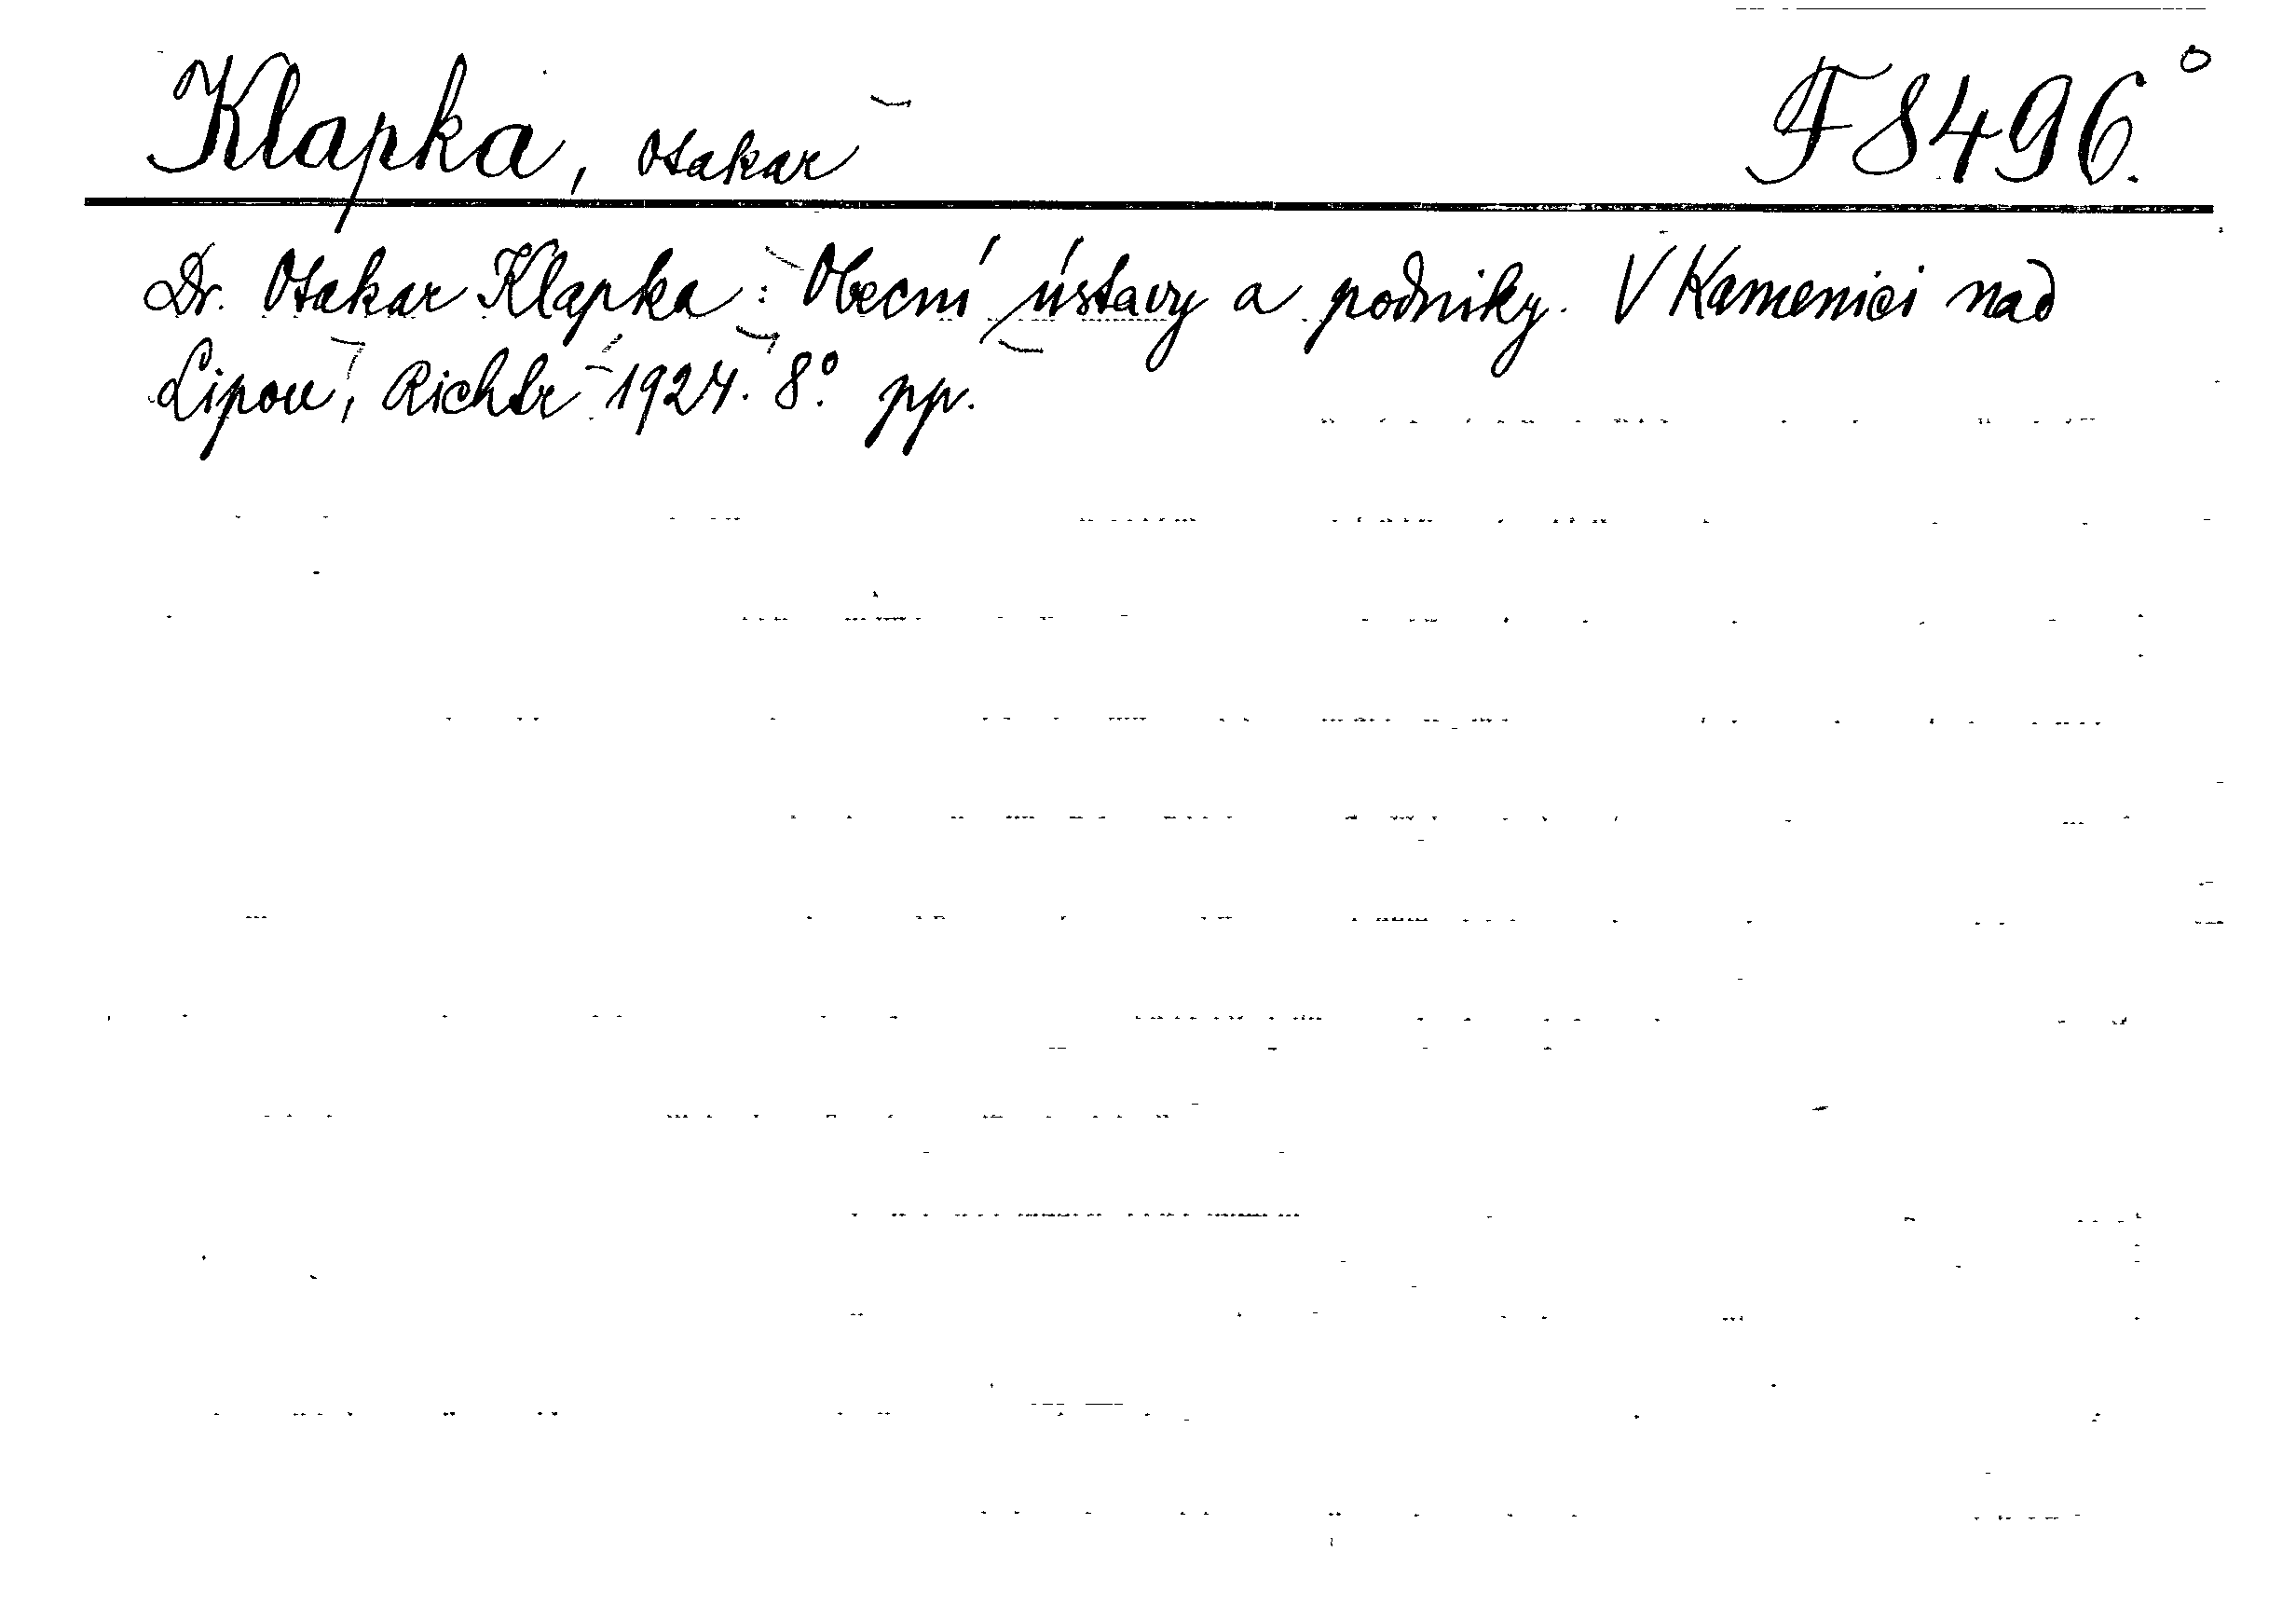 Klapka, Otakar F 8496.
Dr. Otakar Klapka: Obecní ústavy a podniky. V Kamenici nad
Lipou, Richtr 1924. 8° pp.